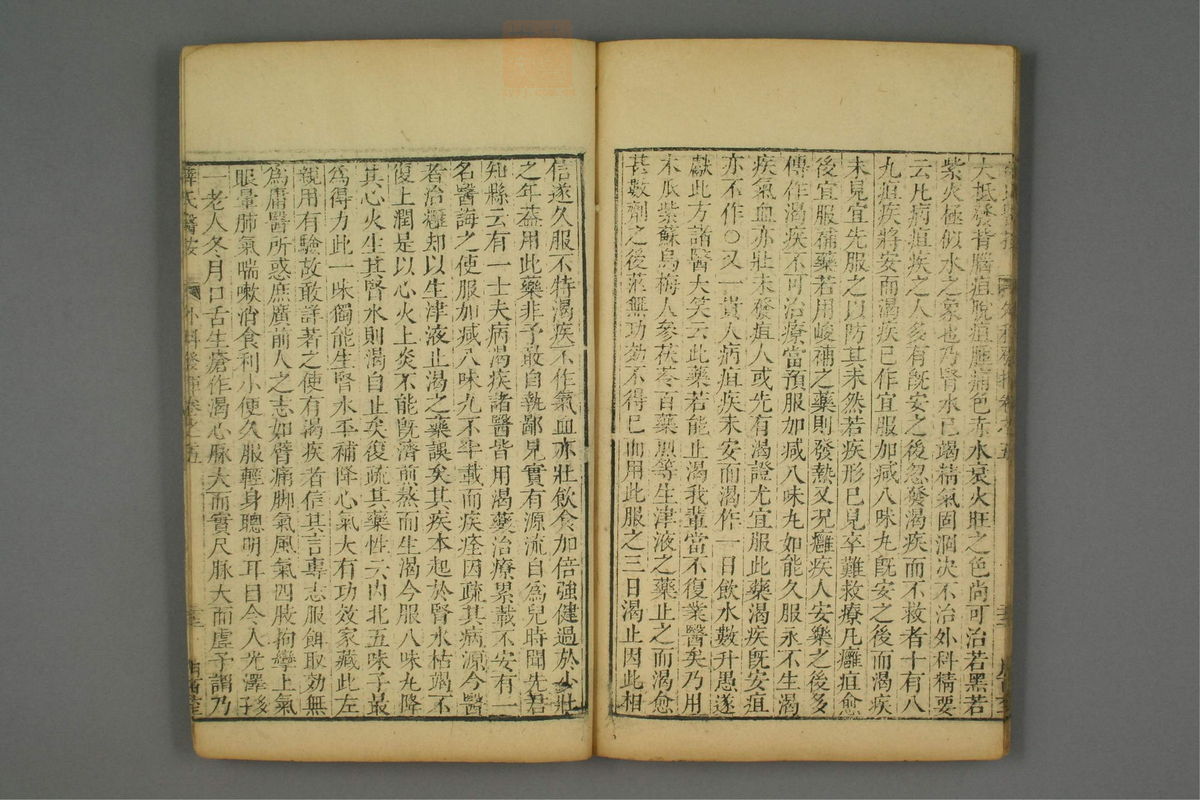 大抵發背腦疽脫疽腫痛色赤水衰火旺之色尚可治若黑若
紫火極似水之象也乃腎水已竭精氣固涸決不治外科精要
云凡病疽疾之人多有既安之後忽發渴疾而不救者十有八
九疽疾將安而渴疾已作宜服加減八味丸既安之後而渴疾
未見宜先服之以防其未然若疾形已見卒難救療凡癰疽愈
後宜服補藥若用峻補之藥則發熱又况癰疾人安樂之後多
傳作渴疾不可治療當預服加減八味丸如能久服永不生渴
疾氣血亦壯未發疽人或先有渴證尤宜服此藥渴疾既安疽
亦不作○又一貴人病疽疾未安而渴作一日飲水數升愚遂
獻此方諸醫大笑云此藥若能止渴我輩當不復業醫矣乃用
木瓜紫蘇烏梅人參茯苓百藥煎等生津液之藥止之而渴愈
甚數劑之後茫無功効不得已而用此服之三日渴止因此相
信遂久服不特渴疾不作氣血亦壯飲食加倍強健過於少壯
之年葢用此藥非予敢自執鄙見實有源流自爲兒時聞先君
知縣云有一士夫病渴疾諸醫皆用渴藥治療累載不安有一
名醫誨之使服加减八味丸不半載而疾痊因疏其病源今醫
者治癰却以生津液止渴之藥誤矣其疾本起於腎水枯竭不
復上潤是以心火上炎不能既濟煎熬而生渴今服八味丸降
其心火生其腎水則渴自止矣復疏其藥性云內北五味子最
爲得力此一味獨能生腎水平補降心氣大有功效家藏此左
親用有驗故敢詳著之使有渴疾者信其言專志服餌取効無
爲庸醫所惑庶廣前人之志如臂痛脚氣風氣四肢拘攣上氣
眼暈肺氣喘嗽消食利小便久服輕身聰明耳目令人光澤多子
一老人冬月口舌生瘡作渴心脉大而實尺脉大而虛予謂乃
薛氏醫按 外科發揮卷之五